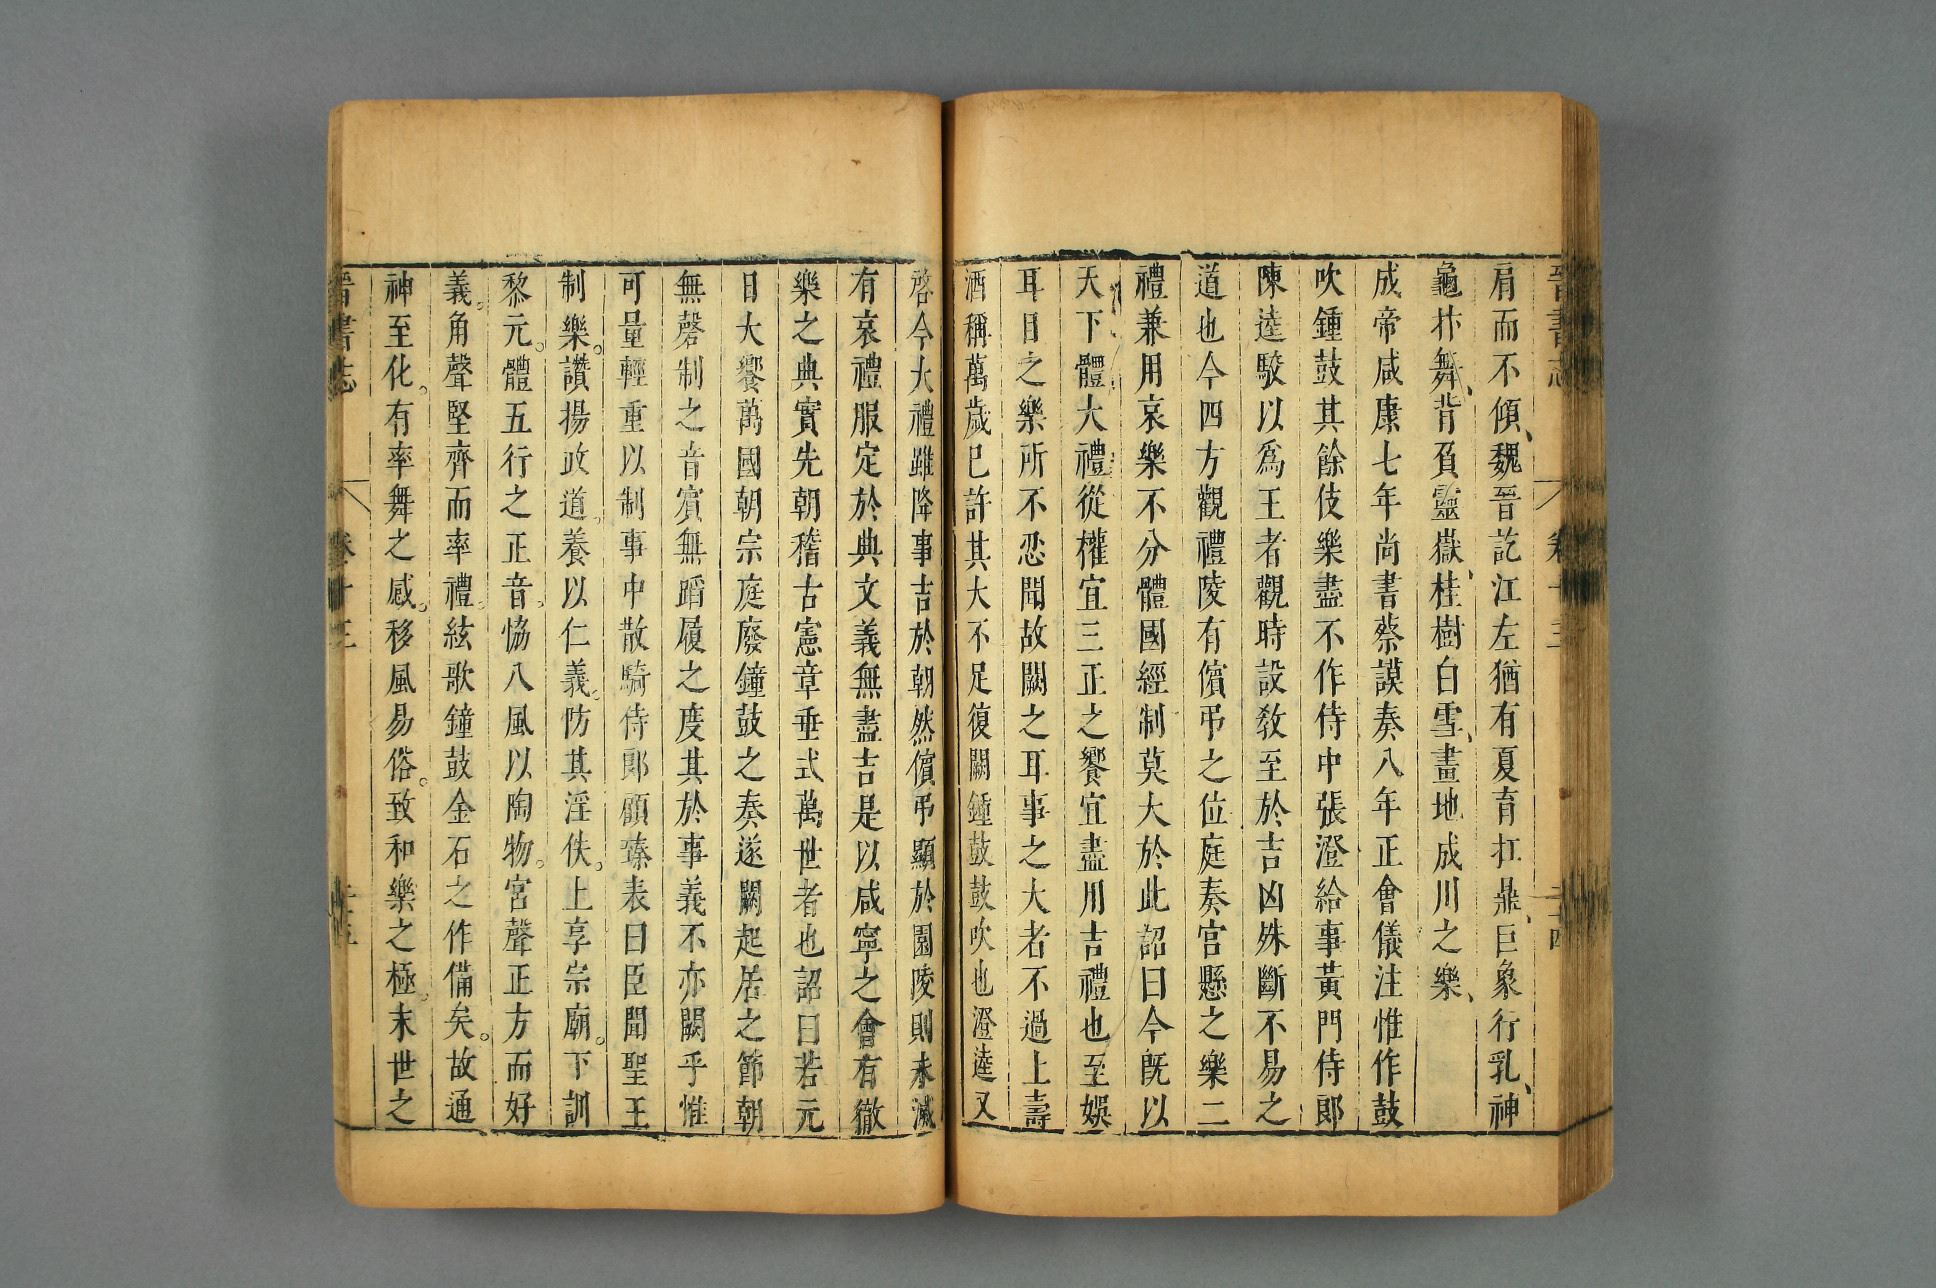 晉書志 卷十三 二十四
肩而不傾魏晉訖江左猶有夏育扛鼎巨象行乳神
龜抃舞背負靈嶽桂樹白雪畫地成川之樂
成帝咸康七年尚書蔡謨奏八年正會儀注惟作鼓
吹鍾鼓其餘伎樂盡不作侍中張澄給事黃門侍郎
陳逵駮以爲王者觀時設敎至於吉凶殊斷不易之
道也今四方觀禮陵有儐弔之位庭奏宮懸之樂二
禮兼用哀樂不分體國經制莫大於此詔曰今旣以
天下體大禮從權宜三正之饗宜盡用吉禮也至娛
耳目之樂所不忍聞故闕之耳事之大者不過上壽
酒稱萬歲已許其大不足復闕鍾鼓鼓吹也澄逵又
啓今大禮雖降事吉於朝然儐弔顯於園陵則未滅
有哀禮服定於典文義無盡吉是以咸寧之會有徹
樂之典實先朝稽古憲章垂式萬世者也詔曰若元
日大饗萬國朝宗庭廢鐘鼓之奏遂闕起居之節朝
無磬制之音賓無蹈履之度其於事義不亦闕乎惟
可量輕重以制事中散騎侍郎顧臻表曰臣聞聖王
制樂。讚揚政道。養以仁義。防其淫佚。上享宗廟。下訓
黎元。體五行之正音。恊八風以陶物。宮聲正方而好
義。角聲堅齊而率禮。絃歌鐘鼓金石之作備矣。故通
神至化。有率舞之感。移風易俗。致和樂之極。末世之
晉書志 卷十三 二十五